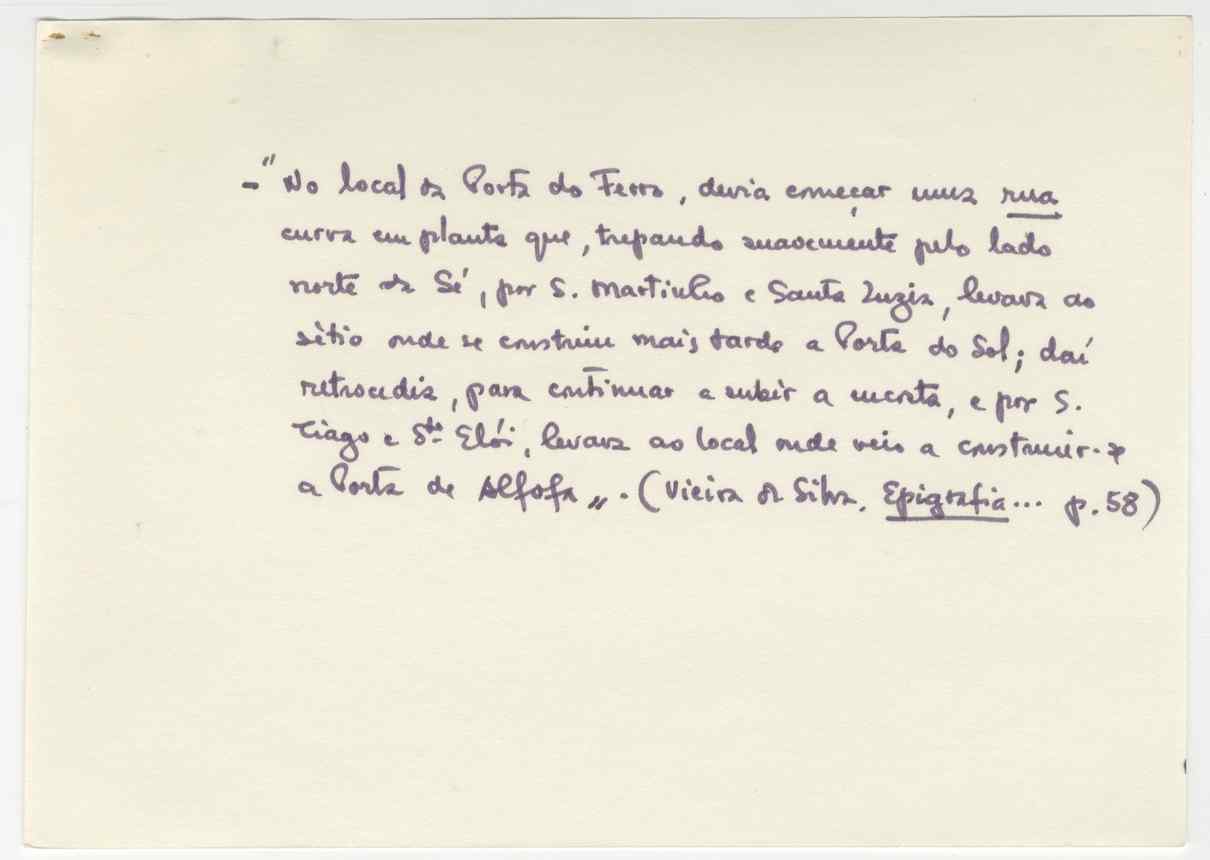 - "No local da Porta do Ferro, devia começar uma rua
curva em planta que, trepando suavemente pelo lado
norte da Sé, por S. Martinho e Santa Luzia, levava ao
sítio onde se construiu mais tarde a Porta do Sol; daí
retrocedia, para continuar a subir a encosta, e por S.
Tiago e Sto Elói, levava ao local onde veio a construir-se
a Porta de Alfofa". (Vieira da Silva, Epigrafia... p. 58)